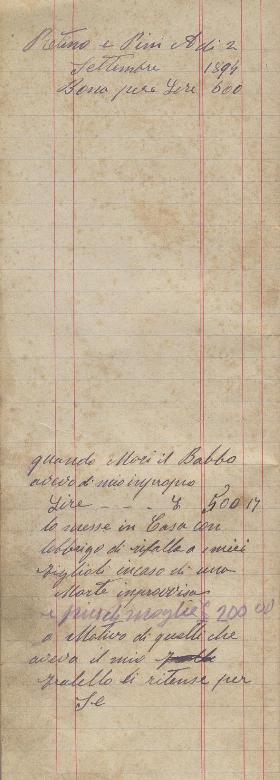 Retino e Pini A di 2
Settembre 1894
Bono per Lire 500
quando Mori il Babbo
avevo di mio in proprio
Lire - - - £ 500 17
lo messe in Casa con
lobbrigo di rifalla a miei
figlioli in caso di una
Morte improvvisa
e più di moglie £ 200 00
a Motivo di quelli che
aveva il mio
fratello li ritense per
Se